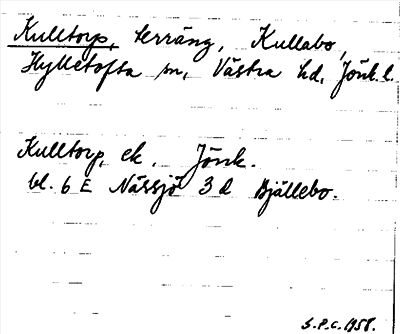 Kulltorp, terräng, Kullabo,
Hylletofta sn, Västra hd, Jönk. l.
Kulltorp, ek. Jönk.
bl. 6 E Nässjö 3 d Bjällebo.
S.P.C. 1958.